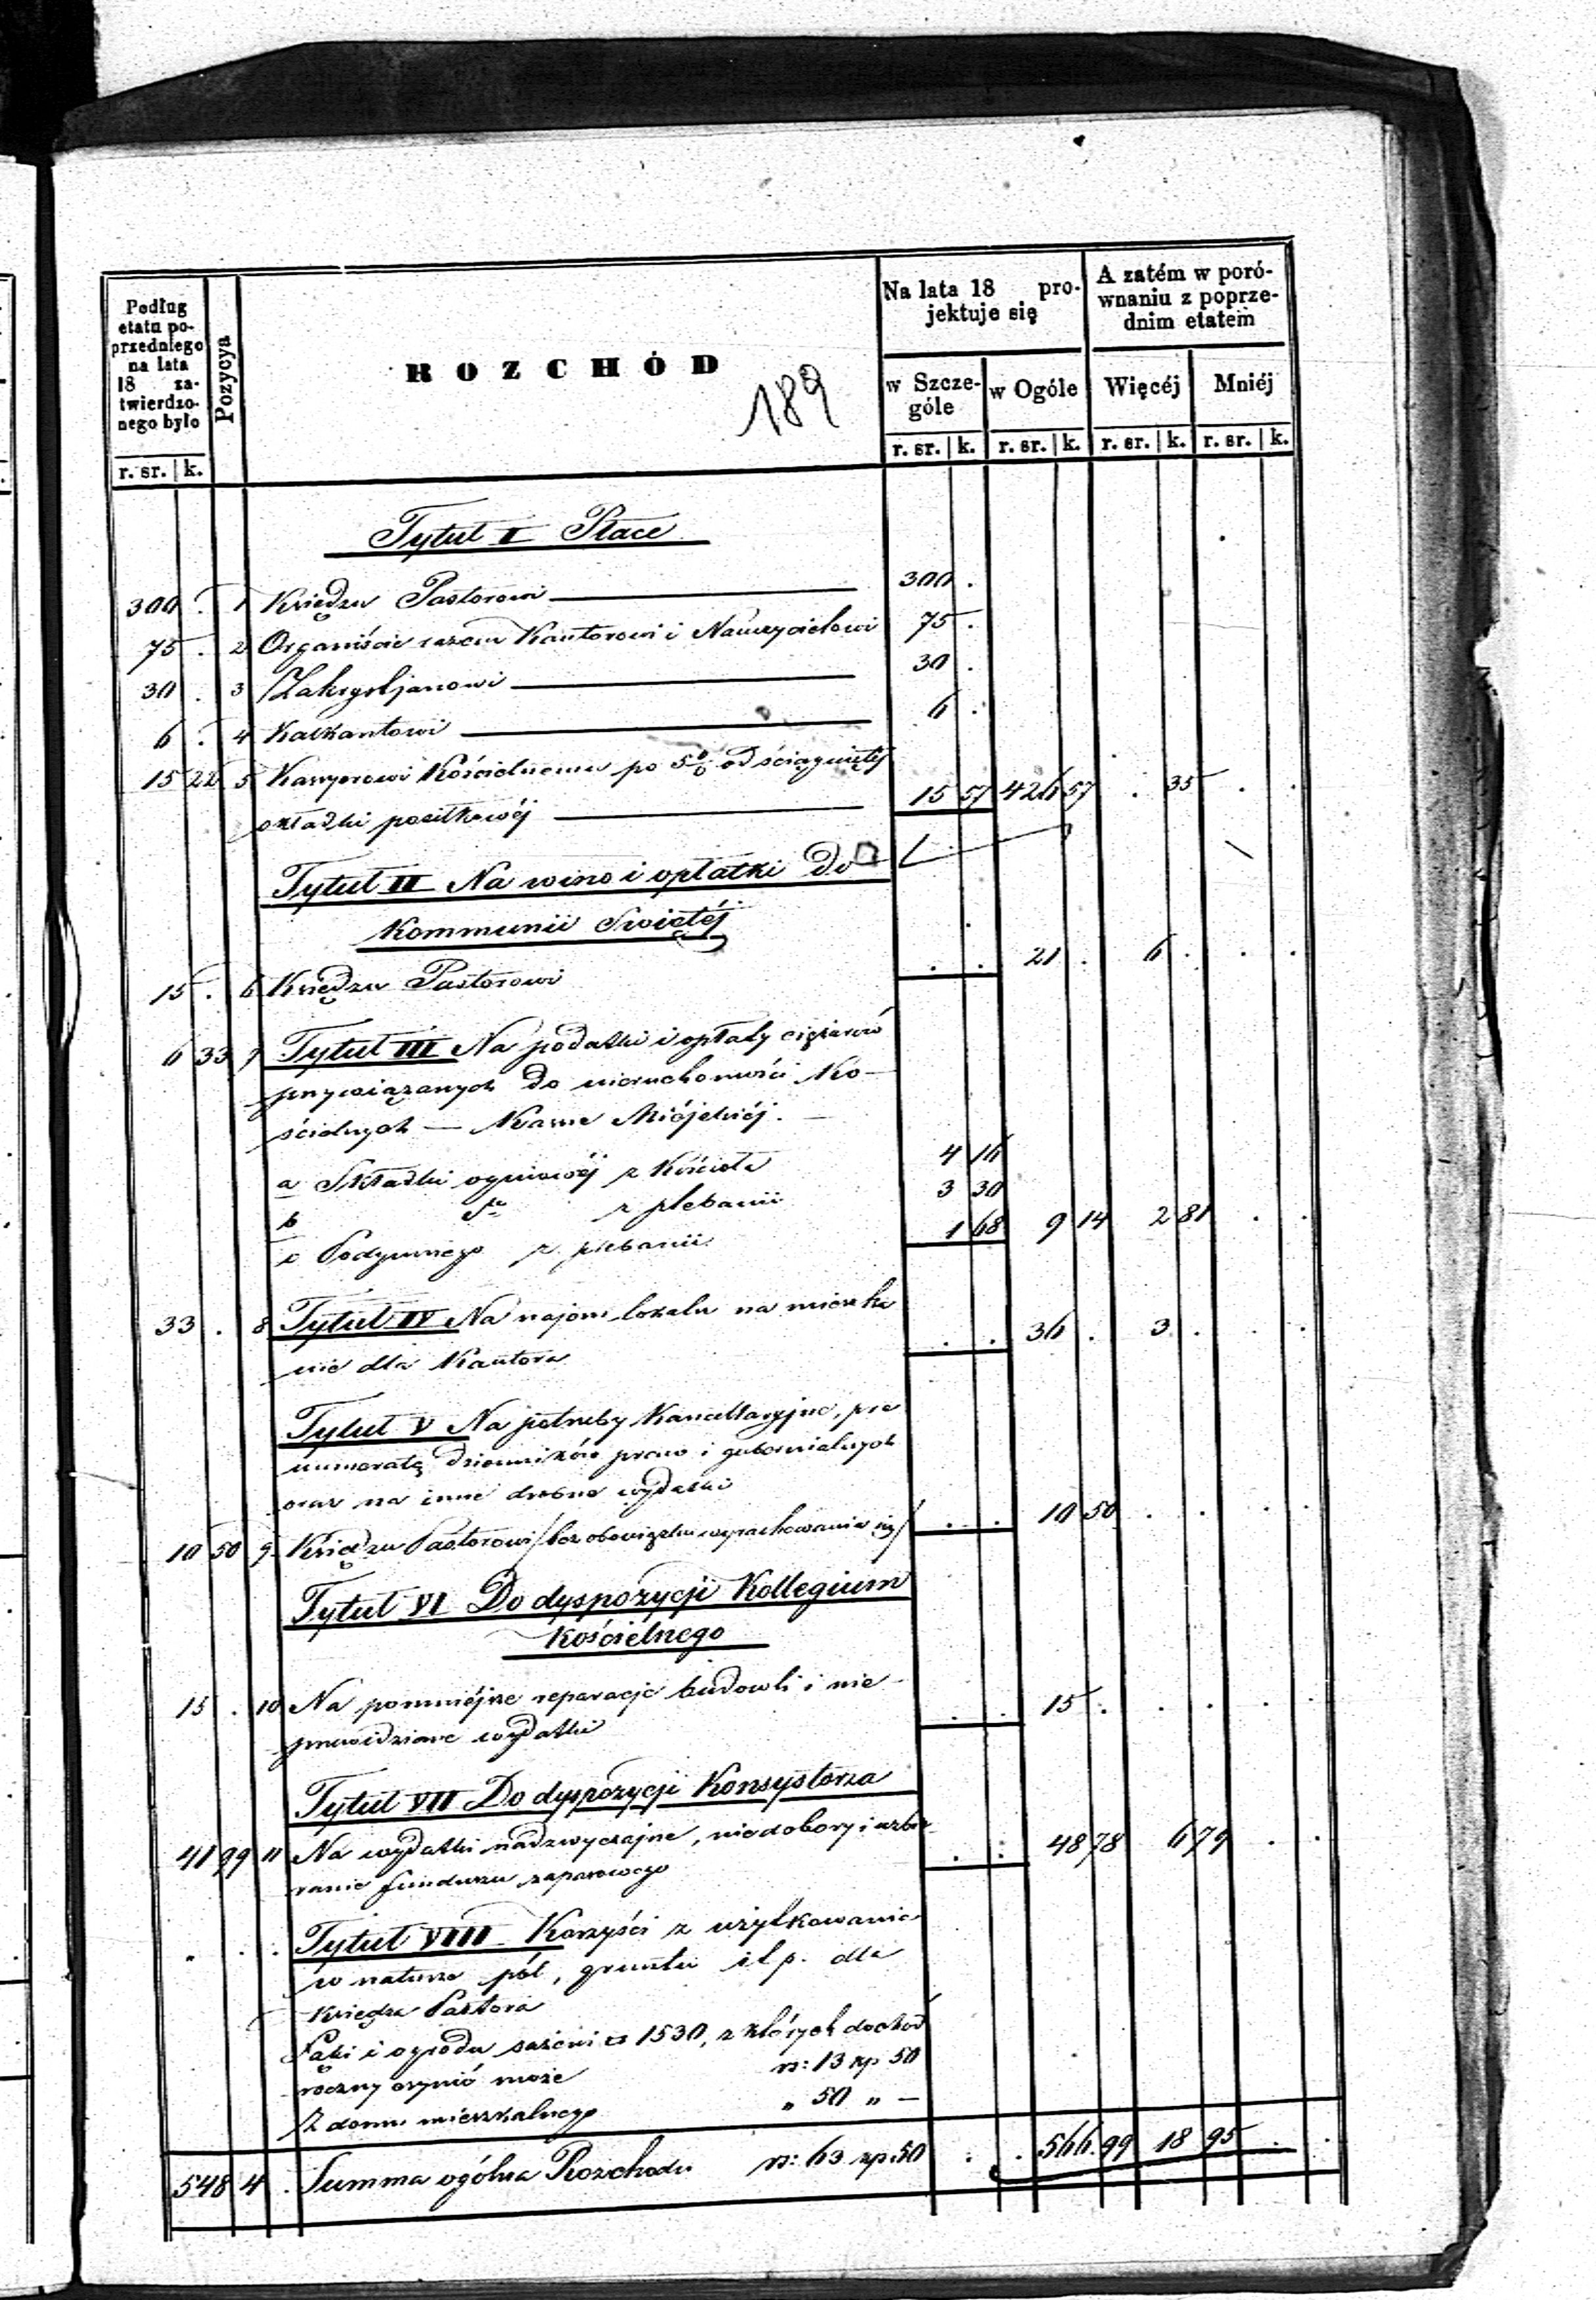 Podług etatu poprzedniego na lata 18 zatwierdzonego było
Pozycya
ROZCHÓD
189
Na lata 18 projektuje się
A zatém w porównaniu z poprzednim etatem
w Szczególe
w Ogóle
Więcéj
Mniéj
r. sr. | k.
r. sr. | k.
r. sr. | k.
r. sr. | k.
r. sr. | k.
Tytuł I Płace
300 . 1 Księdzu Pastorowi 300 .
75 . 2 Organiście razem Kantorowi i Nauczycielowi 75 .
30 . 3 Zakrystjanowi 30 .
6 . 4 Kalkantowi 6 .
15 22 5 Kassyerowi Kościelnemu po 5% od ściągniętéj
składki posiłkowéj 15 57 426 57 . 35 . .
Tytuł II Na wino i opłatki do
Kommunii Swiętéj
15 . 6 Księdzu Pastorowi . . 21 . 6 . . .
6 33 7 Tytuł III Na podatki i opłaty ciężarów
przywiązanych do nieruchomości Ko-
ścielnych — Kassie Miéjskiéj.
a Składki ogniowéj z Kościoła 4 16
b do z plebanii 3 30
c Podymnego z plebanii 1 68 9 14 2 81 . .
33 . 8 Tytuł IV Na najem lokalu na mieszka
nie dla Kantora . . 36 . 3 . . .
Tytuł V Na potrzeby Kancellaryjne, pre
numeratę dzienników praw i gubernialnych
oraz na inne drobne wydatki
10 50 9 Księdzu Pastorowi /bez obowiązku wyrachowania się/ . . 10 50 . . . .
Tytuł VI Do dyspozycji Kollegium
Kościelnego
15 . 10 Na pomniéjsze reparacje budowli i nie-
przewidziane wydatki . . 15 . . . . .
Tytuł VII Do dyspozycji Konsystorza
41 99 11 Na wydatki nadzwyczajne, niedobory i uzbie-
ranie funduszu zapasowego . . 48 78 6 79 . .
. . . Tytuł VIII Korzyści z użytkowania
w naturze pól, gruntu i t p. dla
Księdza Pastora
Łąki i ogrodu sążeni □ 1530, z których dochód
roczny czynić może rs: 13 kp 50
Z domu mieszkalnego „ 50 „ —
548 4 . Summa ogólna Rozchodu rs: 63 kp 50 . . 566 99 18 95 . .